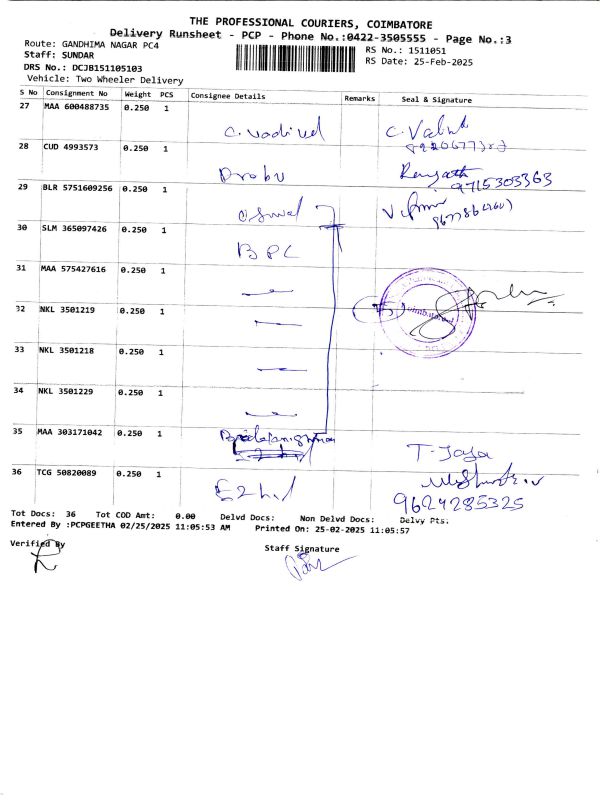 THE PROFESSIONAL COURIERS, COIMBATORE
Delivery Runsheet - PCP - Phone No.:0422-3505555 - Page No.:3
Route: GANDHIMA NAGAR PC4
RS No.: 1511051
Staff: SUNDAR
RS Date: 25-Feb-2025
DRS No.: DCJB151105103
Vehicle: Two Wheeler Delivery
S No Consignment No Weight PCS Consignee Details Remarks Seal & Signature
27 MAA 600488735 0.250 1
C. Vadivel
28 CUD 4993573 0.250 1
Prabu
29 BLR 5751609256 0.250 1
9715303363
30 SLM 365097426 0.250 1
BPC
31 MAA 575427616 0.250 1
32 NKL 3501219 0.250 1
(5)
33 NKL 3501218 0.250 1
34 NKL 3501229 0.250 1
35 MAA 303171042 0.250 1
T. Jaya
36 TCG 50820089 0.250 1
9624285325
Tot Docs: 36 Tot COD Amt: 0.00 Delvd Docs: Non Delvd Docs: Delvy Pts:
Entered By :PCPGEETHA 02/25/2025 11:05:53 AM Printed On: 25-02-2025 11:05:57
Verified By
Staff Signature